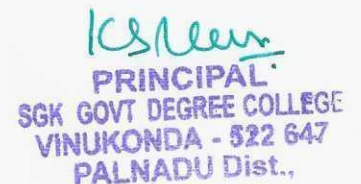 PRINCIPAL
SGK GOVT DEGREE COLLEGE
VINUKONDA - 522 647
PALNADU Dist.,